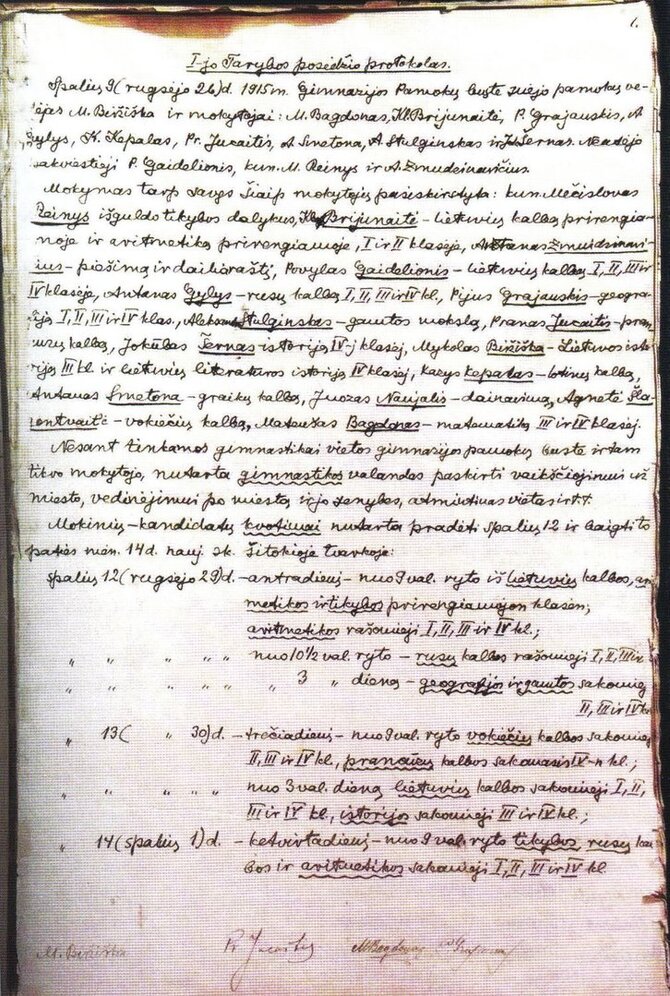 1.
I-jo Tarybos posėdžio protokolas.
Spalių 9 (rugsėjo 26) d. 1915 m. Gimnazijos Pamokų bute suėjo pamokų ve-
dėjas M. Biržiška ir mokytojai: M. Bagdonas, Kl. Brijunaitė, P. Grajauskis, A
Gylys, K. Kepalas, Pr. Jucaitis, A Smetona, A Stulginskas ir J. Šernas. Neatėjo
sakviestieji P. Gaidelionis, kun. M. Reinys ir A. Žmuidzinavičius.
Mokymas tarp savęs šiaip mokytojų pasiskirstyta: kun. Mečislovas
Reinys išguldo tikybos dalykus, Kl. Brijunaitė – lietuvių kalbą prirengia-
moje ir aritmetiką prirengiamoje, I ir II klasėje, Antanas Žmuidzinavi-
čius – piešimą ir dailiraštį, Povylas Gaidelionis – lietuvių kalbą I, II, III ir
IV klasėje, Antanas Gylys – rusų kalbą I, II, III ir IV kl., Pijus Grajauskis – geogra-
fiją I, II, III ir IV klas., Aleksan. Stulginskas – gamtos mokslą, Pranas Jucaitis – pran-
cuzų kalbą, Jokūbas Šernas istoriją IV-j klasėj, Mykolas Biržiška – Lietuvos isto-
riją III kl. ir lietuvių literaturos istoriją IV klasėj, Kazys Kepalas – lotynų kalbą,
Antanas Smetona – graikų kalbą, Juozas Naujalis – dainavimą, Agnetė Šla-
pontvaitė – vokiečių kalbą, Mataušas Bagdonas – matematiką III ir IV klasėj.
Nesant tinkamos gimnastikai vietos gimnazijos pamokų bute ir tam
tikro mokytojo, nutarta gimnastikos valandas paskirti vaikščiojimui už
miesto, vedinėjimui po miestą ir jo senybes, atmintinas vietas ir t.t.
Mokinių – kandidatų kvotimai nutarta pradėti spalių 12 ir baigti to
paties mėn. 14 d. nauj. sk. šitokioje tvarkoje:
spalių 12 (rugsėjo 29) d. – antradienį – nuo 9 val. ryto iš lietuvių kalbos, ari-
metikos ir tikybos prirengiamojon klasėn;
aritmetikos rašomieji I, II, III ir IV kl.;
" " " " " nuo 10½ val. ryto – rusų kalbos rašomieji I, II, III ir
" " " " " " 3 " dieną – geografijos ir gamtos sakomieji
II, III ir IV kl
" 13 ( " 30) d. – trečiadienį – nuo 9 val. ryto vokiečių kalbos sakomieji
II, III ir IV kl., prancūzų kalbos sakomasis IV-n kl.;
" " " " " nuo 3 val. dieną lietuvių kalbos sakomieji I, II,
III ir IV kl., istorijos sakomieji III ir IV kl.;
" 14 (spalių 1) d. – ketvirtadienį – nuo 9 val. ryto tikybos, rusų kal-
bos ir aritmetikos sakomieji I, II, III ir IV kl
M. Biržiška Pr Jucaitis M Bagdonas